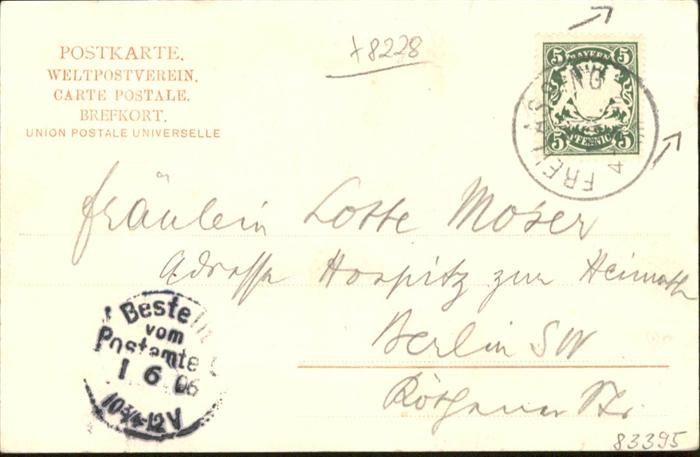 POSTKARTE.
WELTPOSTVEREIN.
CARTE POSTALE.
BREFKORT.
UNION POSTALE UNIVERSELLE
+8228
5 BAYERN 5
5 PFENNIG 5
FREILASSING
4
Fräulein Lotte Moser
Adresse Hospitz zur Heimath
Berlin SW
Str.
Bestellt
vom
Postamte
1 6 06
10¾-12V
83395